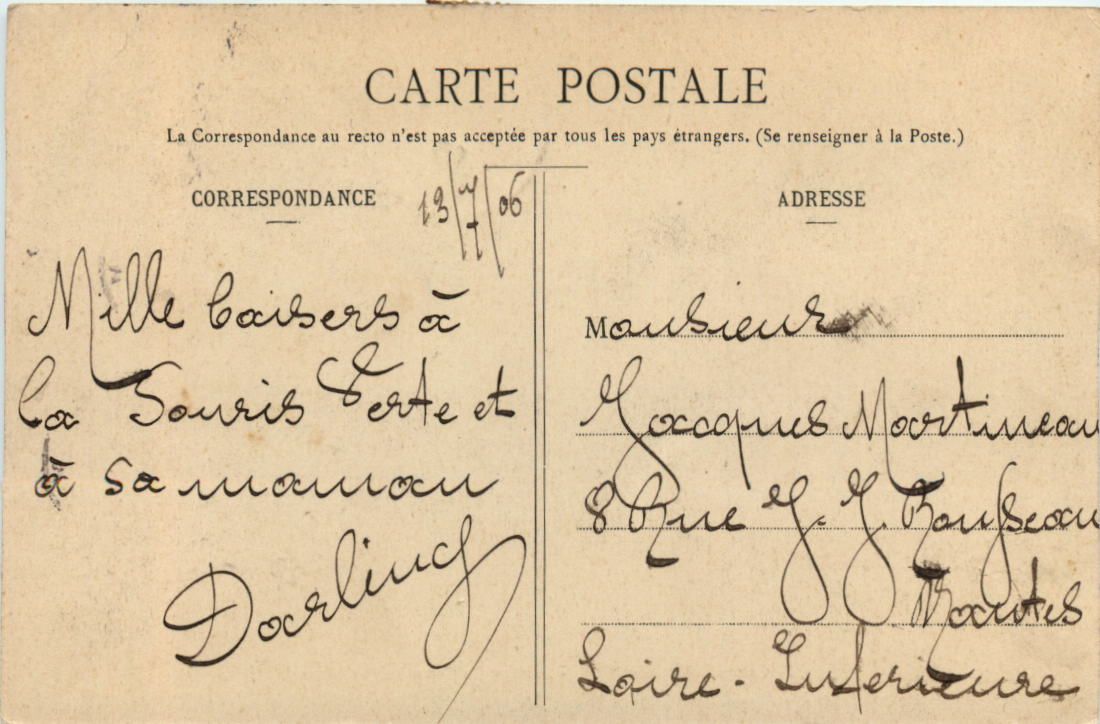 CARTE POSTALE
La Correspondance au recto n'est pas acceptée par tous les pays étrangers. (Se renseigner à la Poste.)
CORRESPONDANCE
13/7/06
Mille baisers à
la Souris Verte et
à sa maman
Darling
ADRESSE
Monsieur
Jacques Martineau
8 Rue J. J. Rousseau
Nantes
Loire-Inferieure